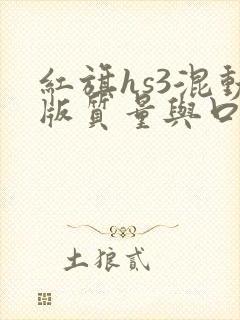 紅旗hs3混動
版質量與口
土狼貳